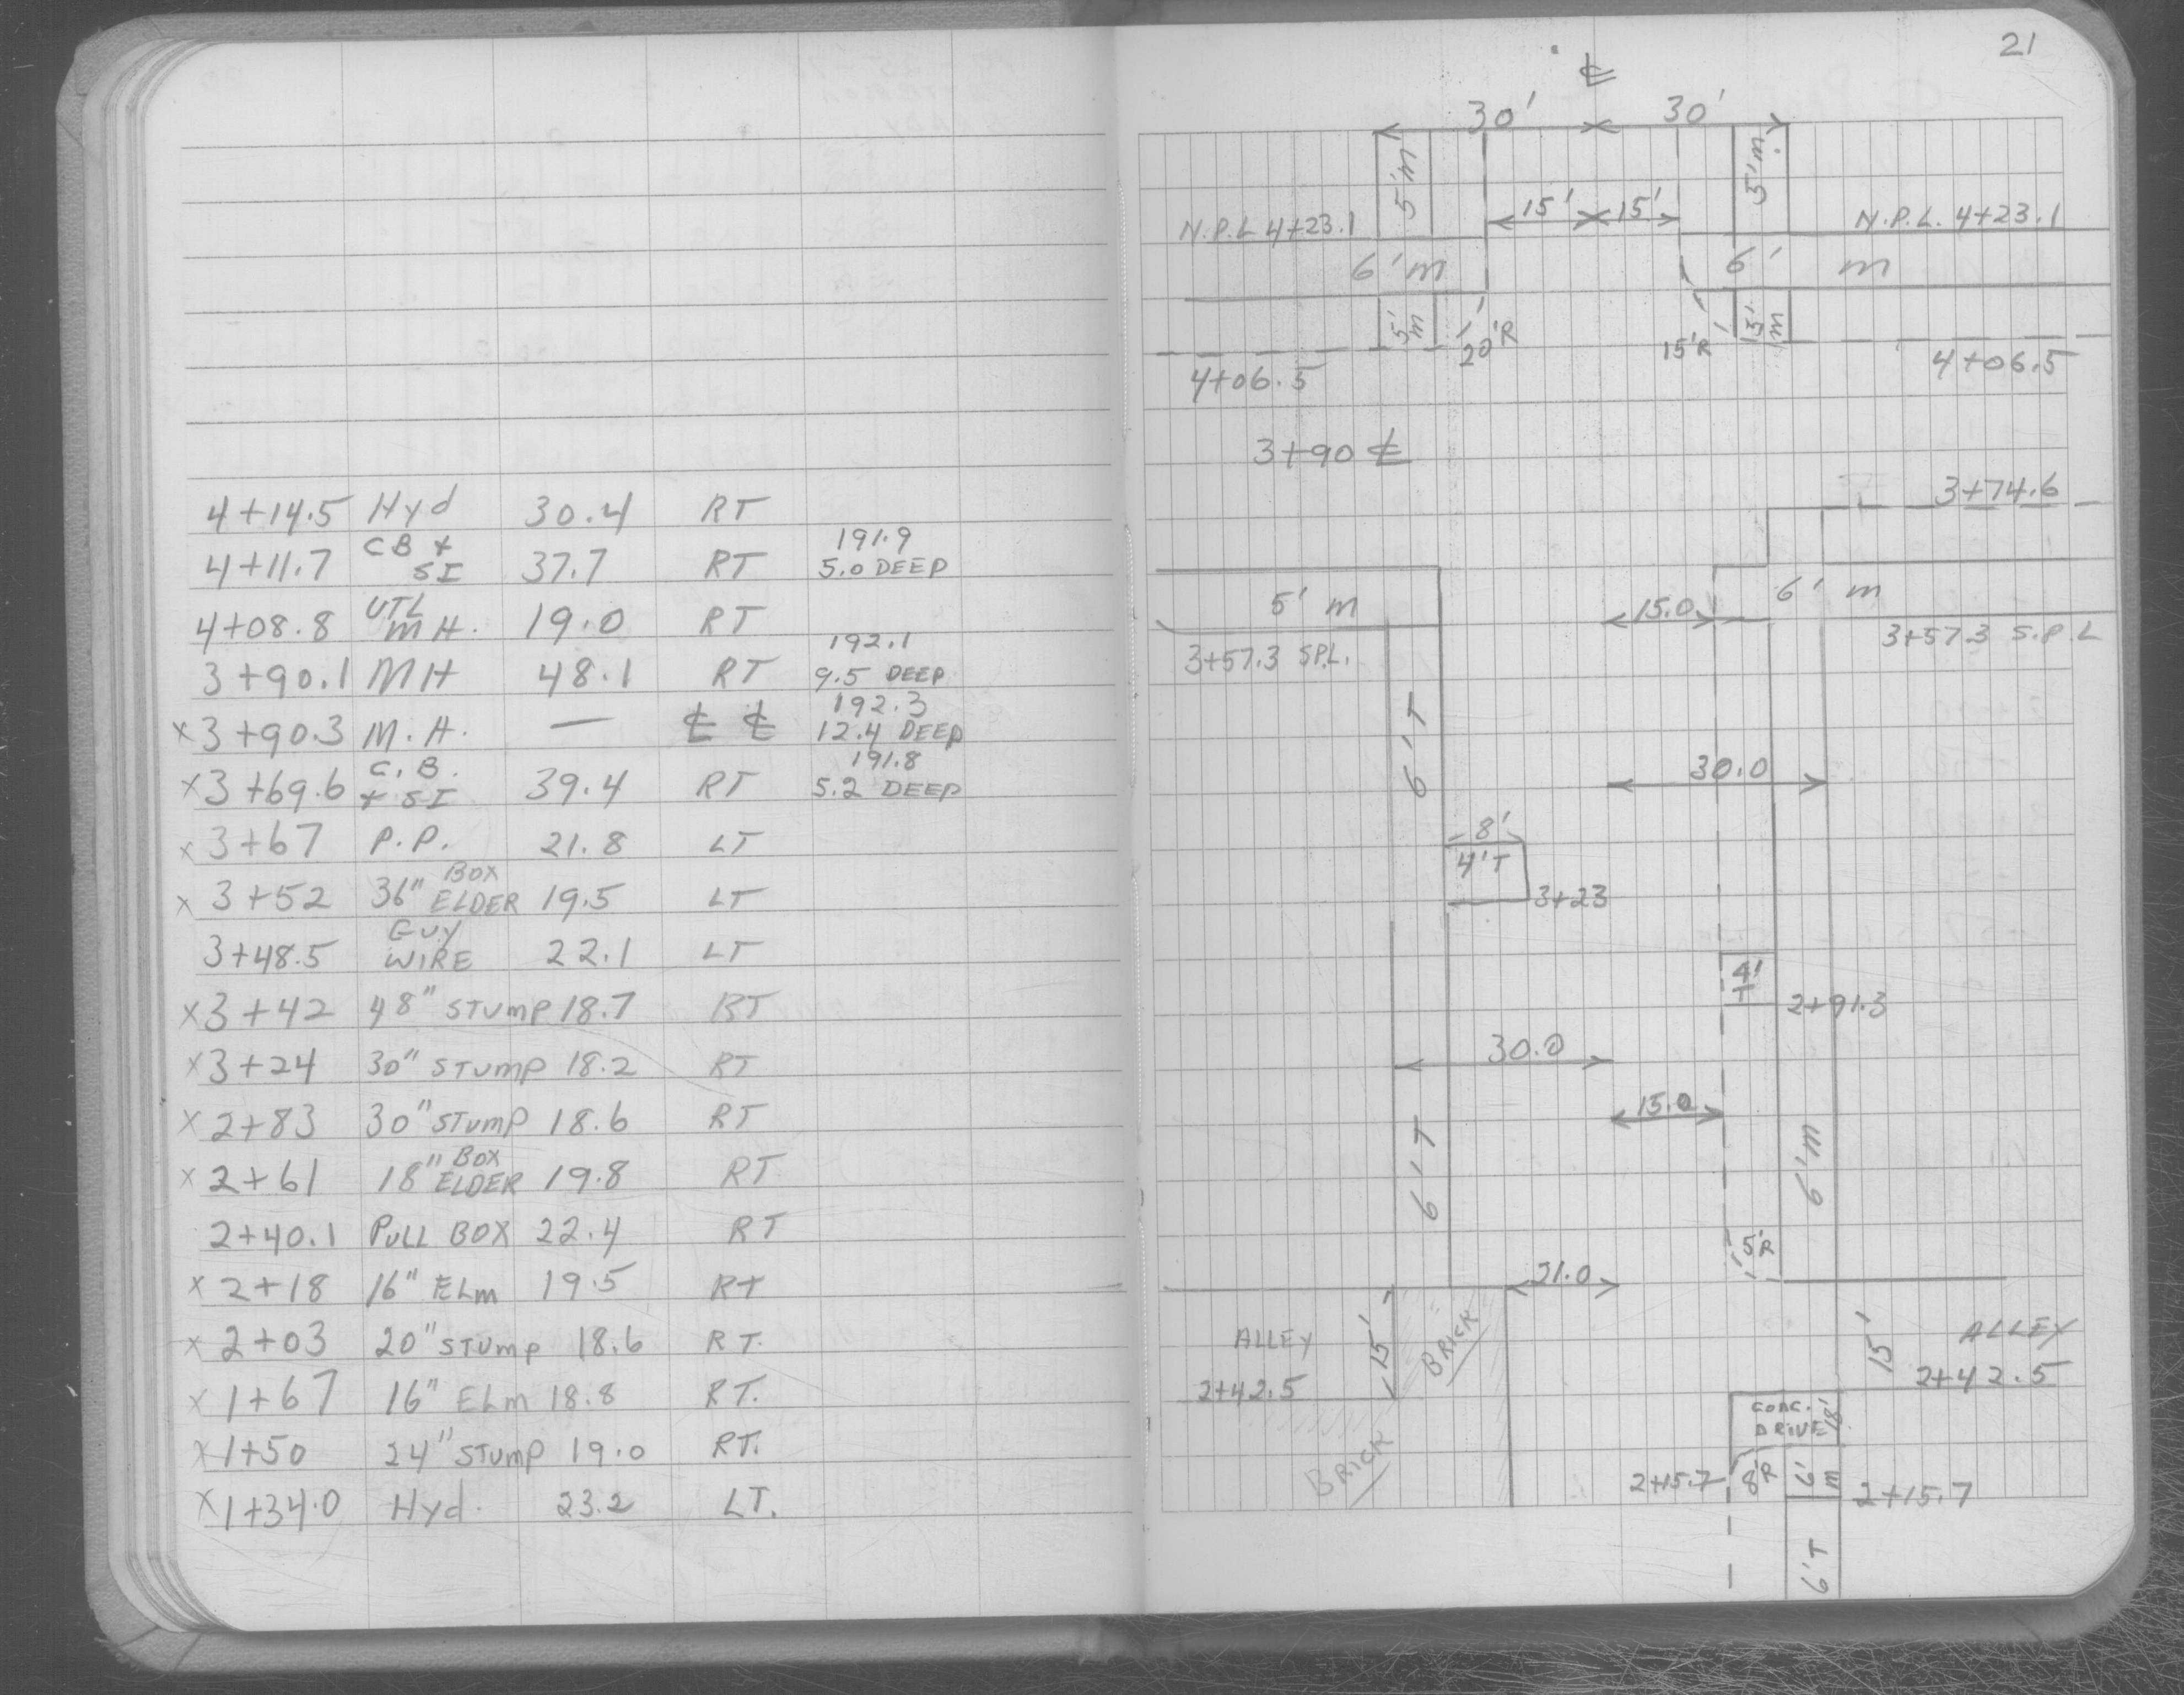 4+14.5 Hyd 30.4 RT
4+11.7 CB + SI 37.7 RT 191.9 5.0 DEEP
4+08.8 UTL MH. 19.0 RT
3+90.1 MH 48.1 RT 192.1 9.5 DEEP
x 3+90.3 M.H. — ℄ ℄ 192.3 12.4 DEEP
x 3+69.6 C.B. + SI 39.4 RT 191.8 5.2 DEEP
x 3+67 P.P. 21.8 LT
x 3+52 36" BOX ELDER 19.5 LT
3+48.5 GUY WIRE 22.1 LT
x 3+42 48" STUMP 18.7 RT
x 3+24 30" STUMP 18.2 RT
x 2+83 30" STUMP 18.6 RT
x 2+61 18" BOX ELDER 19.8 RT
2+40.1 PULL BOX 22.4 RT
x 2+18 16" ELm 19.5 RT
x 2+03 20" STUMP 18.6 RT.
x 1+67 16" ELm 18.8 RT.
x 1+50 24" STUMP 19.0 RT.
x 1+34.0 Hyd. 23.2 LT.
21
℄
30' 30'
5'm 5'm
15' 15'
N.P.L 4+23.1 N.P.L. 4+23.1
6'm 6' m
5'm 20'R 15'R 5'm
4+06.5 4+06.5
3+90 ℄
3+74.6
5' m 15.0 6' m
3+57.3 S.P.L. 3+57.3 S.P.L
6'T
30.0
8'
4'T
3+23
4'T
2+91.3
30.0
15.0
6'T 6'm
5'R
21.0
ALLEY 15' BRICK 15' ALLEY
2+42.5 2+42.5
CONC. DRIVE 18'
BRICK
2+15.7 8'R 6'm 2+15.7
6'T